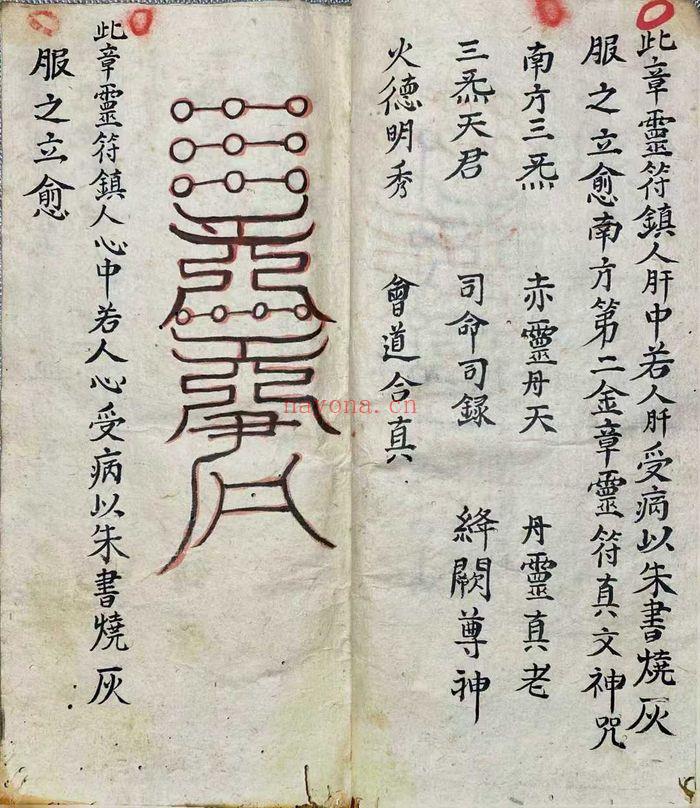 此章靈符鎮人肝中若人肝受病以朱書燒灰
服之立愈南方第二金章靈符真文神咒
南方三炁 赤靈丹天 丹靈真老
三炁天君 司命司録 絳闕尊神
火德明秀 會道合真
此章靈符鎮人心中若人心受病以朱書燒灰
服之立愈
nayona.cn